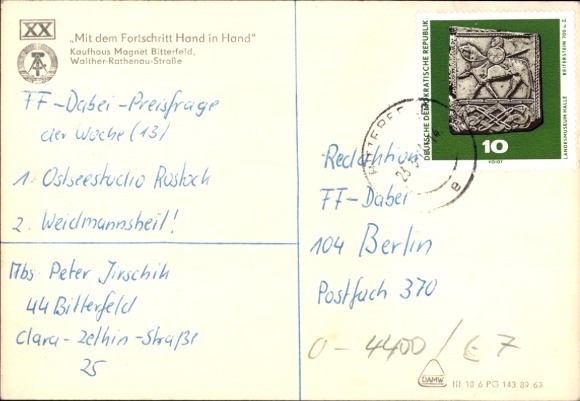 XX
„Mit dem Fortschritt Hand in Hand"
Kaufhaus Magnet Bitterfeld,
Walther-Rathenau-Straße
FF-Dabei-Preisfrage
der Woche (13)
1. Ostseestudio Rostock
2. Weidmannsheil!
Mbs Peter Jirschik
44 Bitterfeld
Clara-Zetkin-Straße
25
DEUTSCHE DEMOKRATISCHE REPUBLIK
REITERSTEIN 700 u. Z.
LANDESMUSEUM HALLE
10
VOIGT
BITTERFE
23
a
Redaktion
FF-Dabei
104 Berlin
Postfach 370
O-4400/E7
DAMW
III 18 6 PG 143 89 69